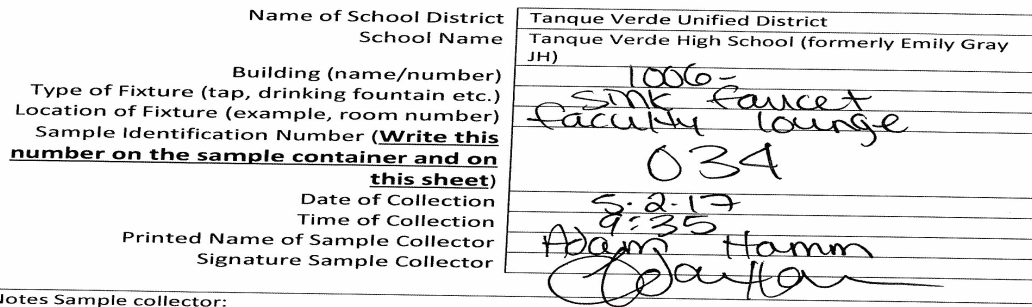 Name of School District Tanque Verde Unified District
School Name Tanque Verde High School (formerly Emily Gray
JH)
Building (name/number) 1006-
Type of Fixture (tap, drinking fountain etc.) Sink faucet
Location of Fixture (example, room number) faculty lounge
Sample Identification Number (Write this
number on the sample container and on
this sheet) 034
Date of Collection 5.2.17
Time of Collection 9:35
Printed Name of Sample Collector Adam Hamm
Signature Sample Collector
Notes Sample collector: